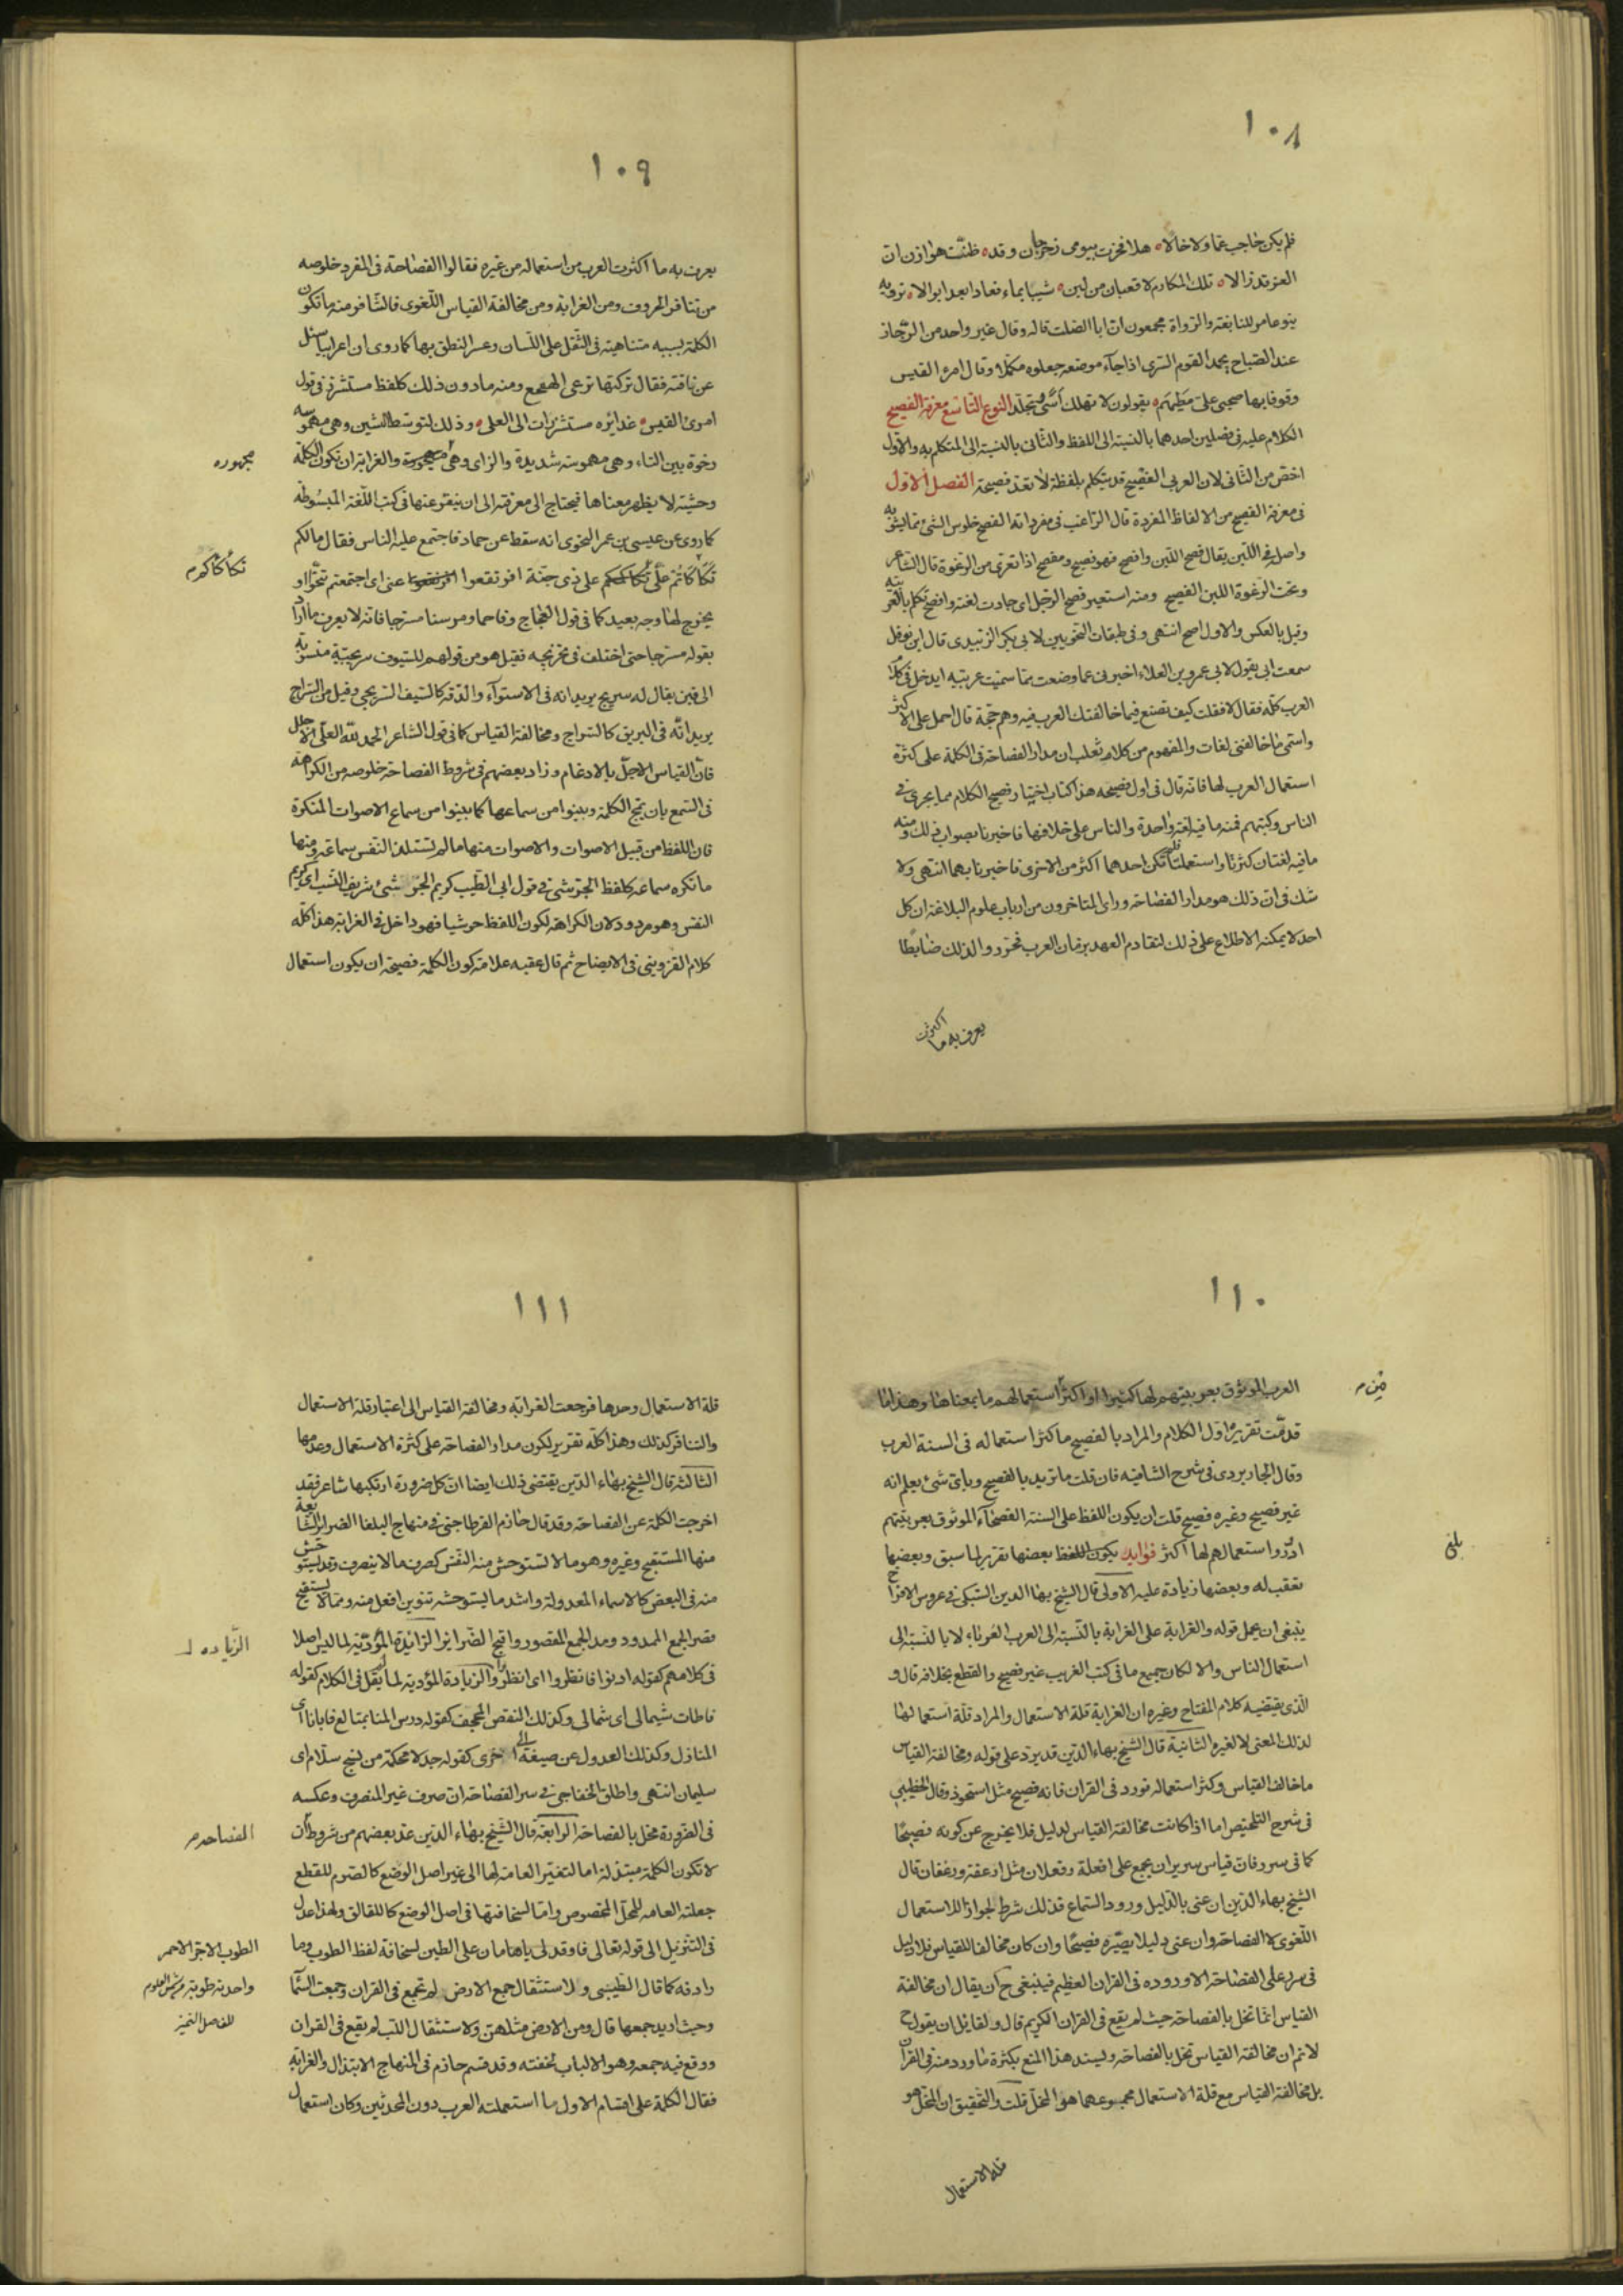 ١٠٨
فلم يكن حاجب عما ولا خالا ه هلا فخرت بيومى رحرحان وقد ه ظنت هوازن ان
العز قد زالا ه تلك المكارم لا قعبان من لبن ه شيبا بماء فعادا بعد ابوالا ه ترويه
بنو عامر للنابغة والرواة مجمعون ان ابا الصلت قاله وقال غير واحد من الرجاز
عند الصباح يحمد القوم السرى اذا جآء موضعه جعلوه مكملا وقال امرؤ القيس
وقوفا بها صحبى على مطيهم ه يقولون لا تهلك أسًى وتجلد النوع التاسع معرفة الفصيح
الكلام عليه فى فصلين احدهما بالنسبة الى اللفظ والثانى بالنسبة الى المتكلم به والاول
اخص من الثانى لان العربى الفصيح قد يتكلم بلفظة لا تعد فصيحة الفصل الاول
فى معرفة الفصيح من الالفاظ المفردة قال الراغب فى مفرداته الفصح خلوص الشئ مما يشوبه
واصله فى اللبن يقال فصح اللبن وافصح فهو فصيح ومفصح اذا تعرى من الرغوة قال الشاعر
وتحت الرغوة اللبن الفصيح ومنه استعير فصح الرجل اى جادت لغته وافصح تكلم بالعربية
وقيل بالعكس والاول اصح انتهى وفى طبقات النحويين لابى بكر الزبيدى قال ابن نوفل
سمعت ابى يقول لابى عمرو بن العلاء اخبرنى عما وضعت مما سميت عربية ايدخل فى كلام
العرب كله فقال لا فقلت كيف تصنع فيما خالفتك العرب فيه وهم حجة قال احمل على الاكثر
واسمى ما خالفنى لغات والمفهوم من كلام ثعلب ان مدار الفصاحة فى الكلمة على كثرة
استعمال العرب لها فانه قال فى اول فصيحه هذا كتاب اختيار فصيح الكلام مما يجرى فى
الناس وكتبهم فمنه ما فيه لغة واحدة والناس على خلافها فاخبرنا بصواب ذلك ومنه
ما فيه لغتان كثرتا واستعملتا فلم تكن احدهما اكثر من الاخرى فاخبرنا بهما انتهى ولا
شك فى ان ذلك هو مدار الفصاحة وراى المتاخرون من ارباب علوم البلاغة ان كل
احد لا يمكنه الاطلاع على ذلك لتقادم العهد بزمان العرب فحرروا لذلك ضابطًا
يعرف به ما
اكثرت
١٠٩
يعرف به ما اكثرت العرب من استعماله من غيره فقالوا الفصاحة فى المفرد خلوصه
من تنافر الحروف ومن الغرابة ومن مخالفة القياس اللغوى فالتنافر منه ما تكون
الكلمة بسببه متناهية فى الثقل على اللسان وعسر النطق بها كما روى ان اعرابيا سئل
عن ناقته فقال تركتها ترعى الهعخع ومنه ما دون ذلك كلفظ مستشزر فى قول
امرئ القيس ه غدائره مستشزرات الى العلى ه وذلك لتوسط الشين وهى مهموسة
رخوة بين التاء وهى مهموسة شديدة والزاى وهى مجهورة والغرابة ان تكون الكلمة
مجهوره
وحشية لا يظهر معناها فيحتاج الى معرفته الى ان ينقر عنها فى كتب اللغة المبسوطة
كما روى عن عيسى بن عمر النحوى انه سقط عن حماد فاجتمع عليه الناس فقال ما لكم
تكأكأتم علىّ تكأكؤكم على ذى جنة افرنقعوا عنى اى اجتمعتم تنحّوا او
تكأكأكم م
يخرج لها وجه بعيد كما فى قول العجاج وفاحما ومرسنا مسرجا فانه لا يعرف ما اراد
بقوله مسرجا حتى اختلف فى تخريجه فقيل هو من قولهم للسيوف سريجية منسوبة
الى قين يقال له سريج يريد انه فى الاستوآء والدقة كالسيف السريجى وقيل من السراج
يريد انه فى البريق كالسراج ومخالفة القياس كما فى قول الشاعر الحمد لله العلى الاجلل
فان القياس الاجلّ بالادغام وزاد بعضهم فى شروط الفصاحة خلوصه من الكراهة
فى السمع بان تمج الكلمة وينبوا من سماعها كما ينبوا من سماع الاصوات المنكرة
فان اللفظ من قبيل الاصوات والاصوات منها ما تستلذ النفس سماعه ومنها
ما تكره سماعه كلفظ الجرشى فى قول ابى الطيب كريم الجرشى شريف النسب اى كريم
النفس وهو مردود لان الكراهة لكون اللفظ حوشيا فهو داخل فى الغرابة هذا كله
كلام القزوينى فى الايضاح ثم قال عقبه علامة كون الكلمة فصيحة ان يكون استعمال
١١٠
العرب الموثوق بعربيتهم لها كثيرا او اكثر استعمالهم ما بمعناها وهذا ما
من م
قدمت تقريره اول الكلام والمراد بالفصيح ما كثر استعماله فى السنة العرب
وقال الجاربردى فى شرح الشافيه فان قلت ما تريد بالفصيح وباى شئ يعلم انه
غير فصيح وغيره فصيح قلت ان يكون اللفظ على السنة الفصحآء الموثوق بعربيتهم
ادور واستعمالهم لها اكثر فوايد يكون اللفظ بعضها تقرير لما سبق وبعضها
بلغ
تعقب له وبعضها زيادة عليه الاولى قال الشيخ بهاء الدين السبكى فى عروس الافراح
ينبغى ان يحمل قوله والغرابة على الغرابة بالنسبة الى العرب العرباء لا بالنسبة الى
استعمال الناس والا لكان جميع ما فى كتب الغريب غير فصيح والقطع بخلافه قال و
الذى يقتضيه كلام المفتاح وغيره ان الغرابة قلة الاستعمال والمراد قلة استعمالها
لذلك المعنى لا لغيره الثانية قال الشيخ بهاء الدين قد يرد على قوله ومخالفة القياس
ما خالف القياس وكثر استعماله فورد فى القران فانه فصيح مثل استحوذ وقال الخطيبى
فى شرح التلخيص اما اذا كانت مخالفة القياس لدليل فلا يخرج عن كونه فصيحًا
كما فى سرر فان قياس سرير ان يجمع على افعلة وفعلان مثل ارغفة ورغفان قال
الشيخ بهاء الدين ان عنى بالدليل ورود السماع فذلك شرط لجواز الاستعمال
اللغوى لا الفصاحة وان عنى دليلا يصيره فصيحًا وان كان مخالفا للقياس فلا دليل
فى سرر على الفصاحة الا وروده فى القران العظيم فينبغى ح ان يقال ان مخالفة
القياس انما تخل بالفصاحة حيث لم يقع فى القران الكريم قال ولقائل ان يقول ح
لا نم ان مخالفة القياس تخل بالفصاحة ويسند هذا المنع بكثرة ما ورد منه فى القران
بل مخالفة القياس مع قلة الاستعمال مجموعهما هو المخل قلت والتحقيق ان المخل هو
قلة الاستعمال
١١١
قلة الاستعمال وحدها فرجعت الغرابة ومخالفة القياس الى اعتبار قلة الاستعمال
والتنافر كذلك وهذا كله تقرير لكون مدار الفصاحة على كثرة الاستعمال وعدمها
الثالثة قال الشيخ بهاء الدين يقتضى ذلك ايضا ان كل ضرورة ارتكبها شاعر فقد
اخرجت الكلمة عن الفصاحة وقد قال حازم القرطاجنى فى منهاج البلغا الضراير الشايعة
منها المستقبح وغيره وهو ما لا تستوحش منه النفس كصرف ما لا ينصرف وقد يستوحش
منه فى البعض كالاسماء المعدولة واشد ما يستوحشه تنوين افعل منه ومما لا يستقبح
قصر الجمع الممدود ومد الجمع المقصور واقبح الضراير الزائدة المؤدية لما ليس اصلا
الزياده ل
فى كلامهم كقوله ادنوا فانظروا اى انظر والزيادة المؤدية لما يقل فى الكلام كقوله
فاطات شيمالى اى شمالى وكذلك النقص المجحف كقوله درس المنا بمتالع فابانا اى
المنازل وكذلك العدول عن صيغة الى اخرى كقوله جدلا محكمة من نسج سلام اى
سليمان انتهى واطلق الخفاجى فى سر الفصاحة ان صرف غير المنصرف وعكسه
فى الضرورة مخل بالفصاحة الرابعة قال الشيخ بهاء الدين عد بعضهم من شروط ان
الفصاحه م
لا تكون الكلمة مبتذلة اما لتغيير العامة لها الى غير اصل الوضع كالصرم للقطع
جعلته العامه للمحل المخصوص واما لسخافتها فى اصل الوضع كاللقالق ولهذا عدل
فى التنزيل الى قوله تعالى فاوقد لى ياهامان على الطين لسخافة لفظ الطوب وما
الطوب الاجر الاحمر
رادفه كما قال الطيبى ولاستثقال جمع الارض لم تجمع فى القران وجمعت السما
واحدته طوبة م شمس العلوم
وحيث اريد جمعها قال ومن الارض مثلهن ولاستثقال اللب لم يقع فى القران
ووقع فيه جمعه وهو الالباب لخفته وقد قسم حازم فى المنهاج الابتذال والغرابة
فقال الكلمة على اقسام الاول ما استعملته العرب دون المحدثين وكان استعمال